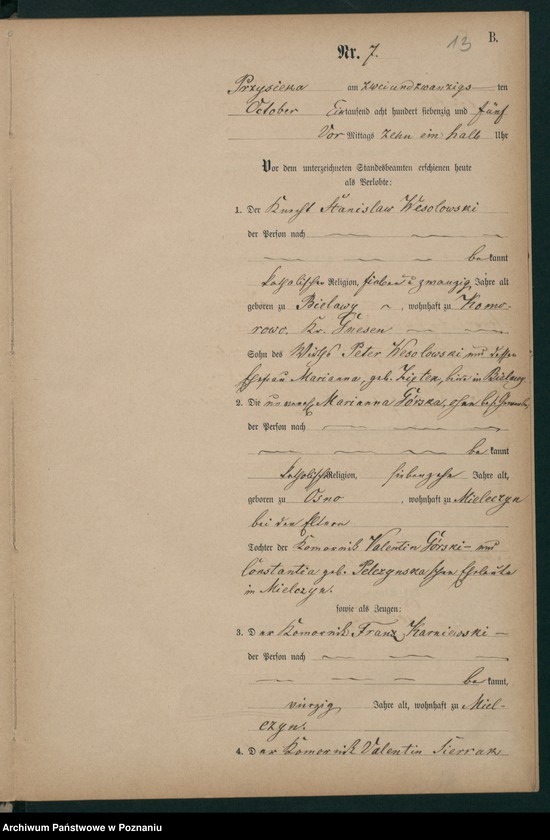 B.
13
Nr. 7.
Przysieka am zweiundzwanzigs ten
October Eintausend acht hundert siebenzig und fünf
Vor Mittags zehn ein halb Uhr
Vor dem unterzeichneten Standesbeamten erschienen heute
als Verlobte:
1. Der Knecht Stanislaw Wesolowski
der Person nach
be kannt
katholischer Religion, sieben u zwanzig Jahre alt
geboren zu Bielawy, wohnhaft zu Komo-
rowo. Kr. Gnesen
Sohn des Wirths Peter Wesolowski und dessen
Ehefrau Marianna, geb. in Bielawy
2. Die Marianna Górska, ohne
der Person nach
be kannt
katholischer Religion, siebenzehn Jahre alt,
geboren zu Osno, wohnhaft zu Mielczyn
bei den Eltern
Tochter der Komornik Valentin Górski und
Constantia geb. Pelczynska schen Eheleute
in Mielczyn.
sowie als Zeugen:
3. Der Komornik Franz Karniewski
der Person nach
be kannt,
vierzig Jahre alt, wohnhaft zu Miel-
czyn.
4. Der Komornik Valentin
Archiwum Państwowe w Poznaniu